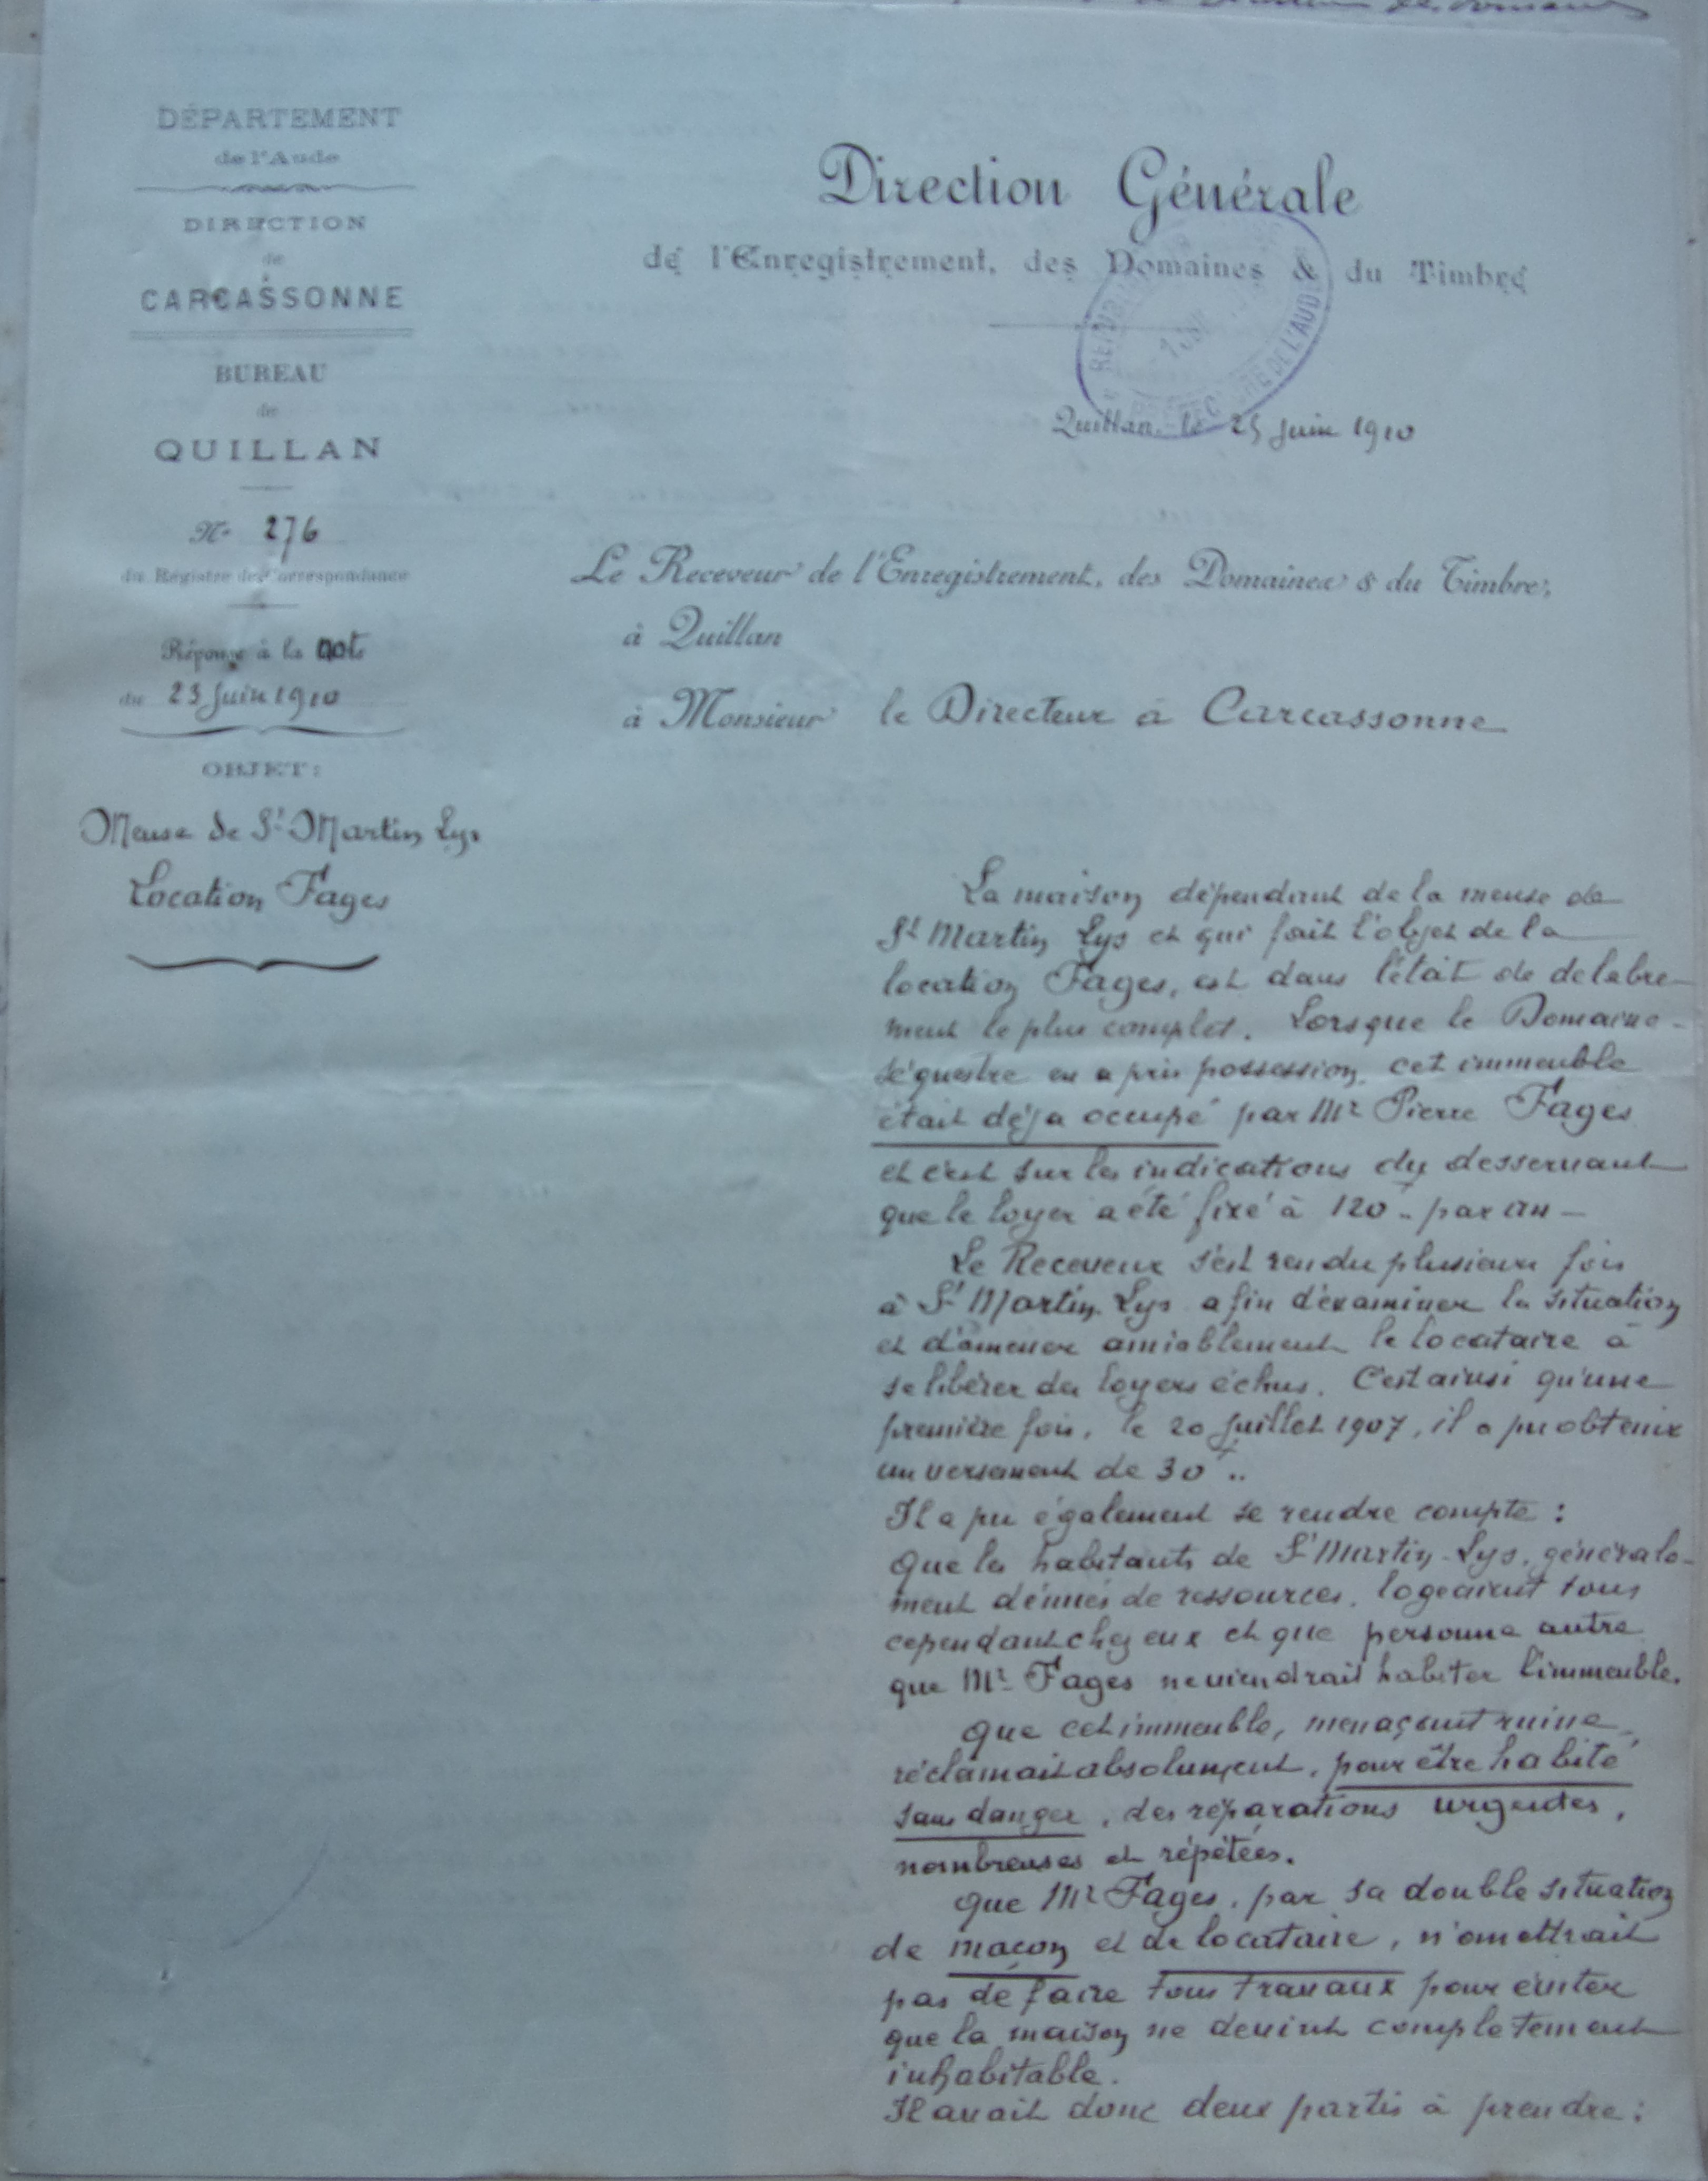 DÉPARTEMENT
de l'Aude
DIRECTION
de
CARCASSONNE
BUREAU
de
QUILLAN
N° 276
du Registre de Correspondance
Réponse à la note
du 23 Juin 1910
OBJET:
Mense de St Martin Lys
Location Fages
Direction Générale
de l'Enregistrement, des Domaines & du Timbre
RÉPUBLIQUE
PRÉFECTURE DE L'AUDE
Quillan, le 25 Juin 1910
Le Receveur de l'Enregistrement, des Domaines & du Timbre,
à Quillan
à Monsieur le Directeur à Carcassonne
La maison dépendant de la mense de
St Martin Lys et qui fait l'objet de la
location Fages, est dans l'état de delabre-
ment le plus complet. Lorsque le Domaine-
séquestre en a pris possession, cet immeuble
était déja occupé par Mr Pierre Fages
et c'est sur les indications du desservant
que le loyer a été fixé à 120f.. par an —
Le Receveur s'est rendu plusieurs fois
à St Martin-Lys afin d'examiner la situation
et d'amener amiablement le locataire à
se libérer des loyers échus. C'est ainsi qu'une
première fois, le 20 Juillet 1907, il a pu obtenir
un versement de 30f..
Il a pu également se rendre compte :
Que les habitants de St Martin-Lys, générale-
ment dénués de ressources, logeaient tous
cependant chez eux et que personne autre
que Mr Fages ne viendrait habiter l'immeuble.
Que cet immeuble, menaçant ruine,
réclamait absolument, pour être habité
sans danger, des réparations urgentes,
nombreuses et répétées.
Que Mr Fages, par sa double situation
de maçon et de locataire, n'omettrait
pas de faire tous travaux pour éviter
que la maison ne devint completement
inhabitable.
Il avait donc deux partis à prendre :